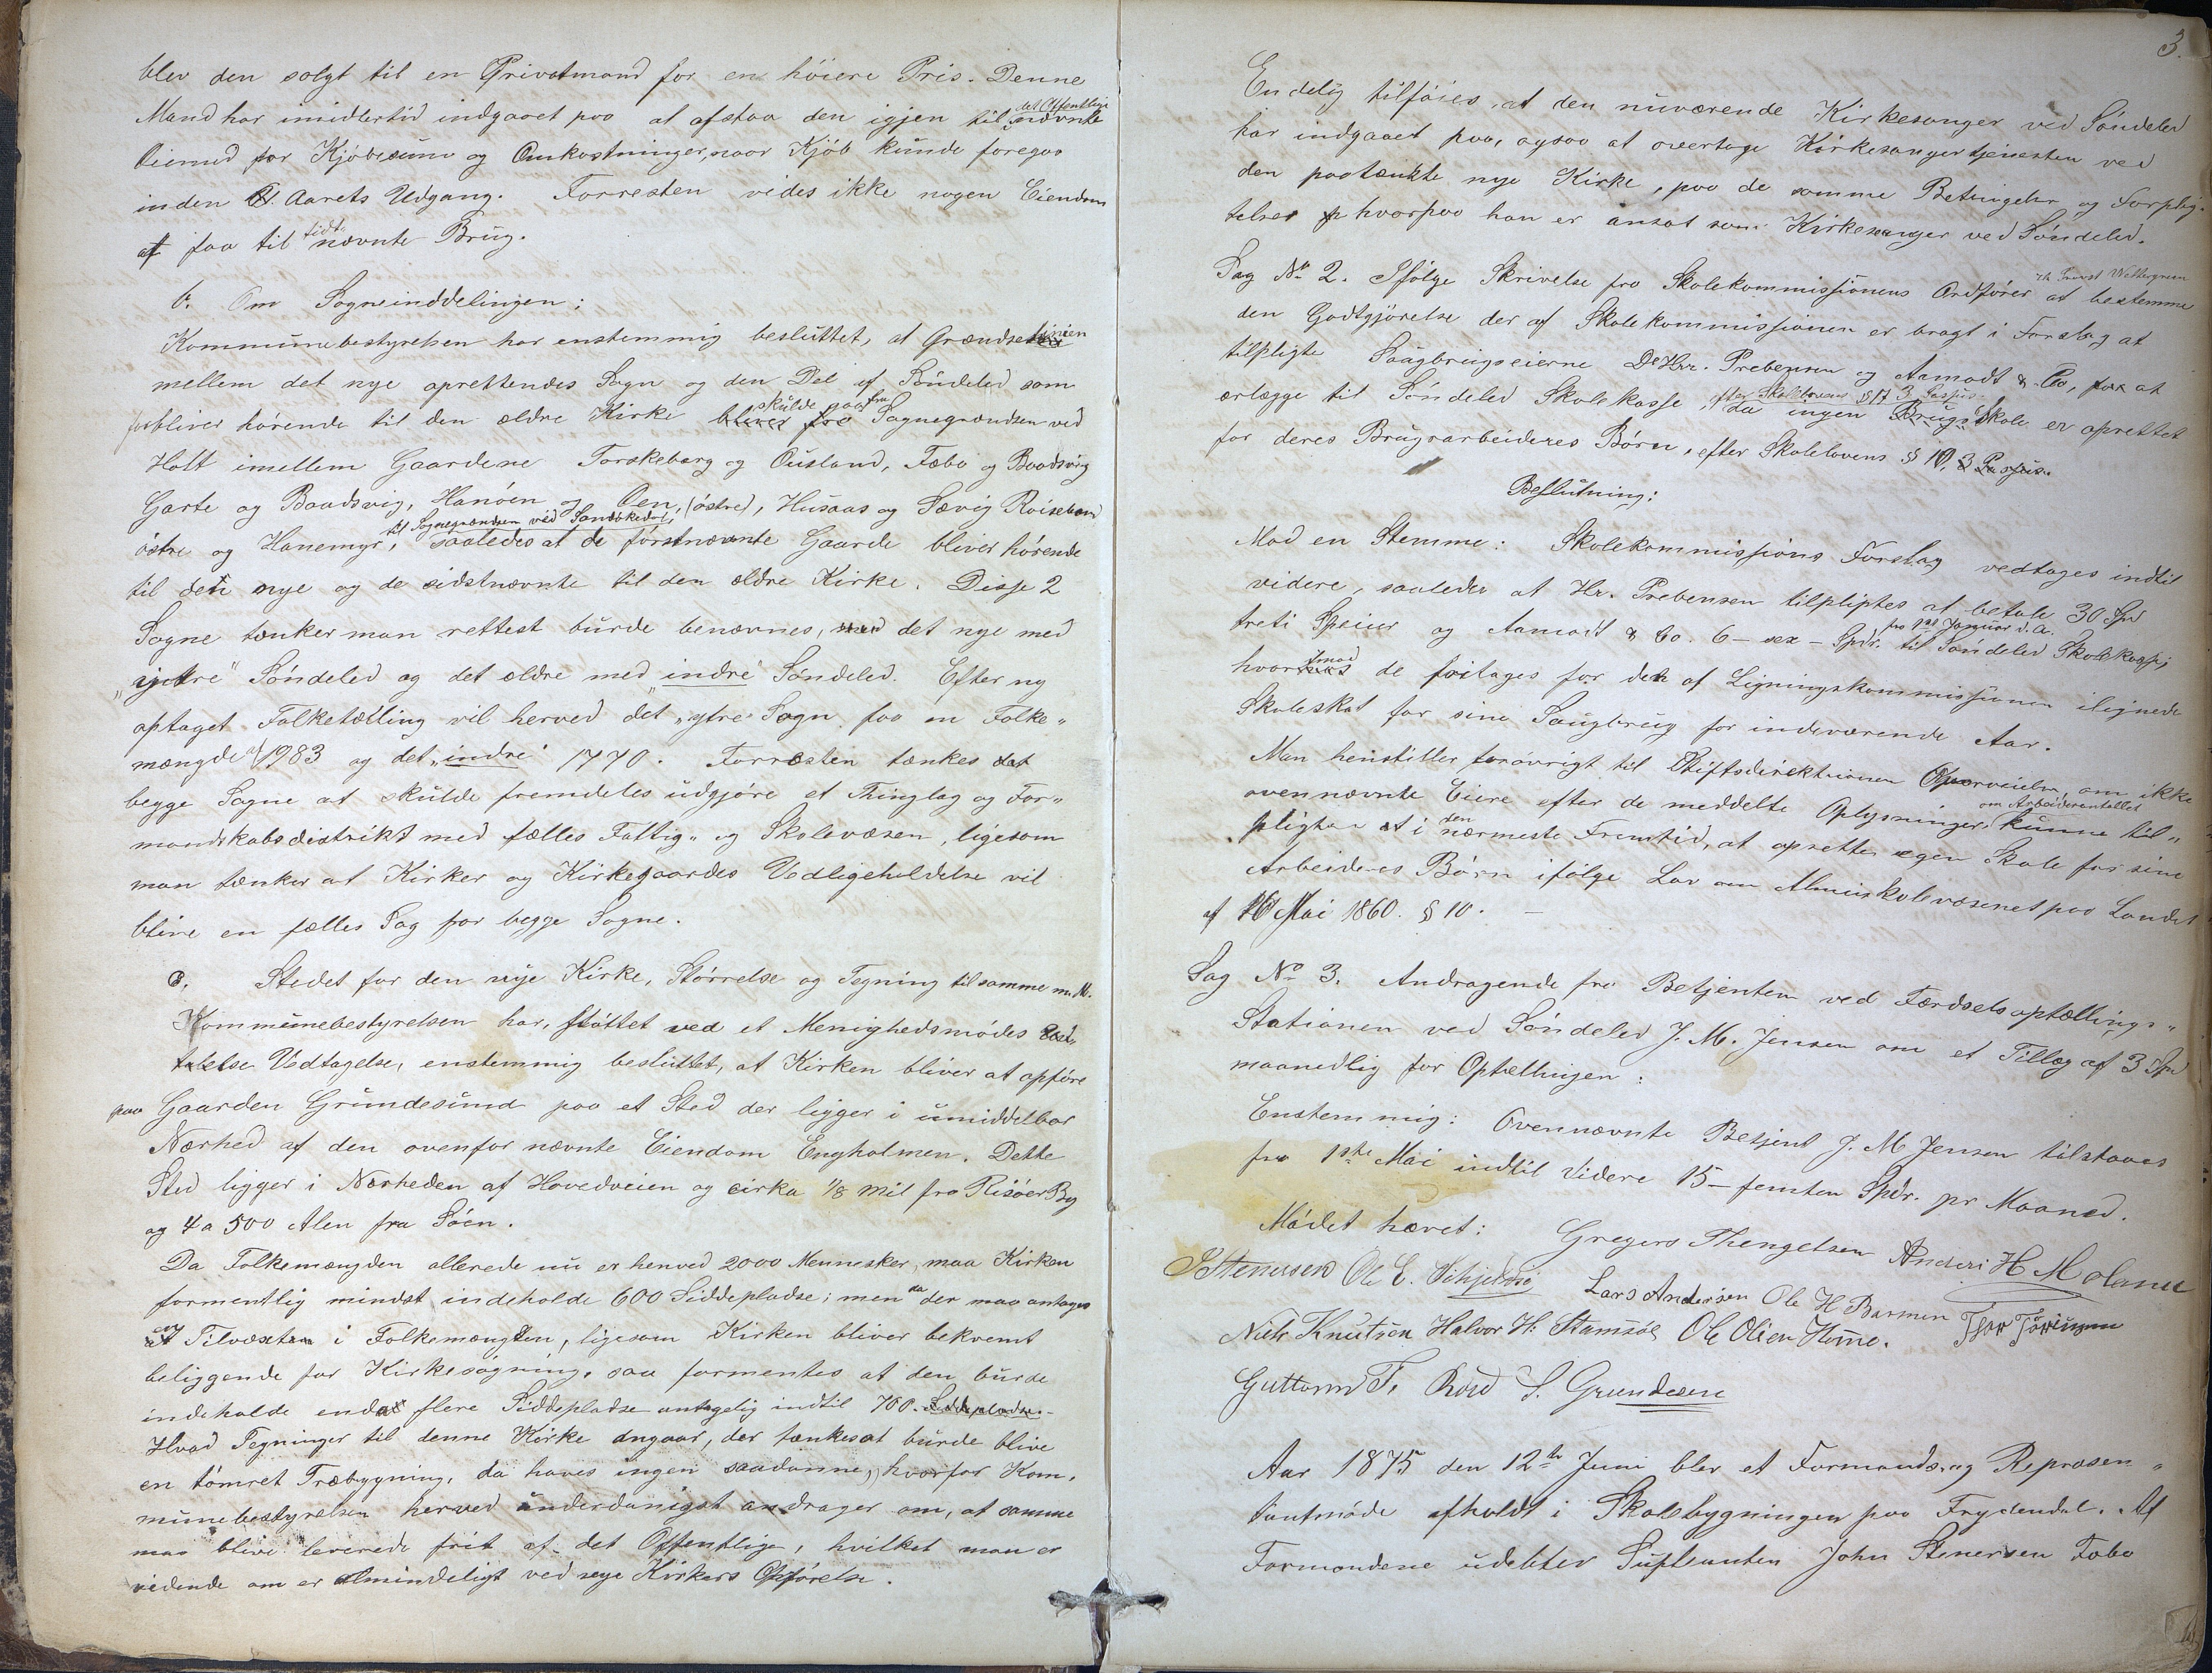 blev den solgt til en Privatmand for en höiere Pris. Denne
Mand har imidlertid indgaaet paa at afstaa den igjen til det Offentlige nævnte
Öiemed for Kjöbesum og Omkostninger, naar Kjöb kunde foregaa
inden Aarets Udgang. Forresten vides ikke nogen Eiendom
at faa til sidtnævnte Brug.
b. Om Sogneinddelingen:
Kommunebestyrelsen har enstemmig besluttet, at Grændselinien
mellem det nye oprettendes Sogn og den Del af Söndeled som
forbliver hörende til den ældre Kirke skulde gaa fra Sognegrændsen ved
Holt imellem Gaardene Torskeberg og Ousland, Fæbo og Baadsvig
Garte og Baadsvig, Hanöen og Öen, (östre), Husaas og Sævig Röisebam
östre og Hanemyr, til Sognegrændsen ved Sandökedal, saaledes at de förstnævnte Gaarde bliver hörende
til den nye og de sidstnævnte til den ældre Kirke. Disse 2
Sogne tænker man rettest burde benævnes, det nye med
„ytre" Söndeled og det ældre med „indre" Söndeled. Efter ny
optaget Folketælling vil herved det „ytre" Sogn faa en Folke„
mængde af 1983 og det „indre" 1770. Forresten tænkes
begge Sogne at skulde fremdeles udgjöre et Thinglag og For„
mandskabsdistrikt med fælles Fattig„ og Skolevæsen, ligesom
man tænker at Kirker og Kirkegaardes Vedligeholdelse vil
blive en fælles Sag for begge Sogne.
c. Stedet for den nye Kirke, Störrelse og Tegning til samme m. M.
Kommunebestyrelsen har, stöttet ved et Menighedsmödes
Vedtagelse, enstemmig besluttet, at Kirken bliver at opföre
paa Gaarden Grundesund paa et Sted der ligger i umiddelbar
Nærhed af den ovenfor nævnte Eiendom Engholmen. Dette
Sted ligger i Nærheden af Hovedveien og cirka 1/8 Mil fra Risöer By
og 4 a 500 Alen fra Söen.
Da Folkemængden allerede nu er henved 2000 Mennesker, maa Kirken
formentlig mindst indeholde 600 Siddepladse; men da der maa antages
en Tilvæxt i Folkemængden, ligesom Kirken bliver bekvemt
beliggende for Kirkesögning, saa formentes at den burde
indeholde endda flere Siddepladse antagelig indtil 700. Siddepladse.
Hvad Tegninger til denne Kirke angaar, der tænkes at burde blive
en tömret Træbygning, da haves ingen saadanne, hvorfor Kom„
munebestyrelsen herved underdanigst andrager om, at samme
maa blive leverede frit af det Offentlige, hvilket man er
vidende om er almindeligt ved nye Kirkers Opförelse.
3.
Endelig tilföies, at den nuværende Kirkesanger ved Söndeled
har indgaaet paa, ogsaa at overtage Kirkesangertjenesten ved
den paatænkte nye Kirke, paa de samme Betingelser og Forplig„
telser hvorpaa han er ansat som Kirkesanger ved Söndeled.
Sag No 2. Ifölge Skrivelse fra Skolekommissionens Ordförer Hr Provst Wettergreen at bestemme
den Godtgjörelse der af Skolekommissionen er bragt i Forslag at
tilpligte Saugbrugseierne D'Hrr. Prebensen og Aamodt & Co, at
erlægge til Söndeled Skolekasse, efter Skolelovens § 17 3 Passus da ingen Brugs Skole er oprettet
for deres Brugsarbeideres Börn, efter Skolelovens § 10, 3 Passus.
Beslutning:
Mod en Stemme: Skolekommissions Forslag vedtages indtil
videre, saaledes at Hr. Prebensen tilpligtes at betale 30 Spd
treti Specier og Aamodt & Co. 6 – sex – Spdr. fra 1ste Januar d. A. til Söndeled Skolekasse,
hvorimod de fritages for den af Ligningskommissionen ilignede
Skoleskat for sine Saugbrug for indeværende Aar.
Man henstiller forövrigt til Stiftsdirektionen Overveielse, om ikke
ovennævnte Eiere efter de meddelte Oplysninger om Arbeiderantallet kunne til„
pligtes at i den nærmeste Fremtid, at oprette egen Skole for sine
Arbeideres Börn ifölge Lov om Almueskolevæsenet paa Landet
af 16 Mai 1860. § 10. –
Sag No 3. Andragende fra Betjenten ved Færdselsoptællings„
Stationen ved Söndeled J. M. Jensen om et Tillæg af 3 Spd
maanedlig for Optællingen:
Enstemmig: Ovennævnte Betjent J. M Jensen tilstaaes
fra 1ste Mai indtil Videre 15 – femten Spdr. pr Maaned.
Mödet hævet: Gregers Thengelsen Anders H Moland
S Stenersen Ole E. Lars Andersen Ole H Barmen
Niels Knutsen Halvor H. Stamsöe Ole Olsen Home.
Guttorm T. Röed S. Grundesen
Aar 1875 den 12te Juni blev et Formands og Repræsen„
tantmöde afholdt i Skolebygningen paa Frydendal. Af
Formændene udeblev Suplanten John Stenersen Fæbo